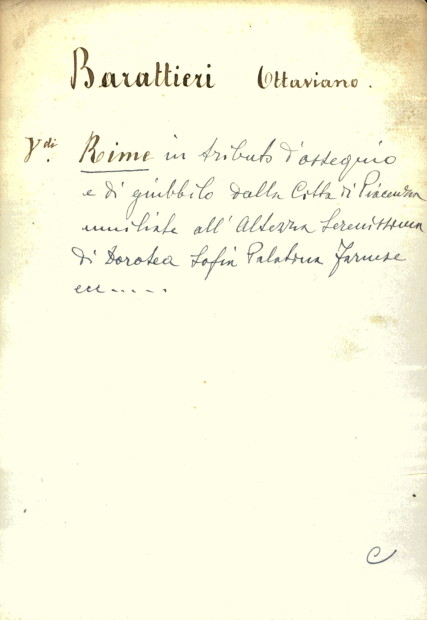 Barattieri Ottaviano.
Vdi. Rime in tributo d'ossequio
e di giubbilo dalla Città di Piacenza
umiliate all'Altezza Serenissima
di Dorotea Sofia Palatina Farnese
ecc.....
C